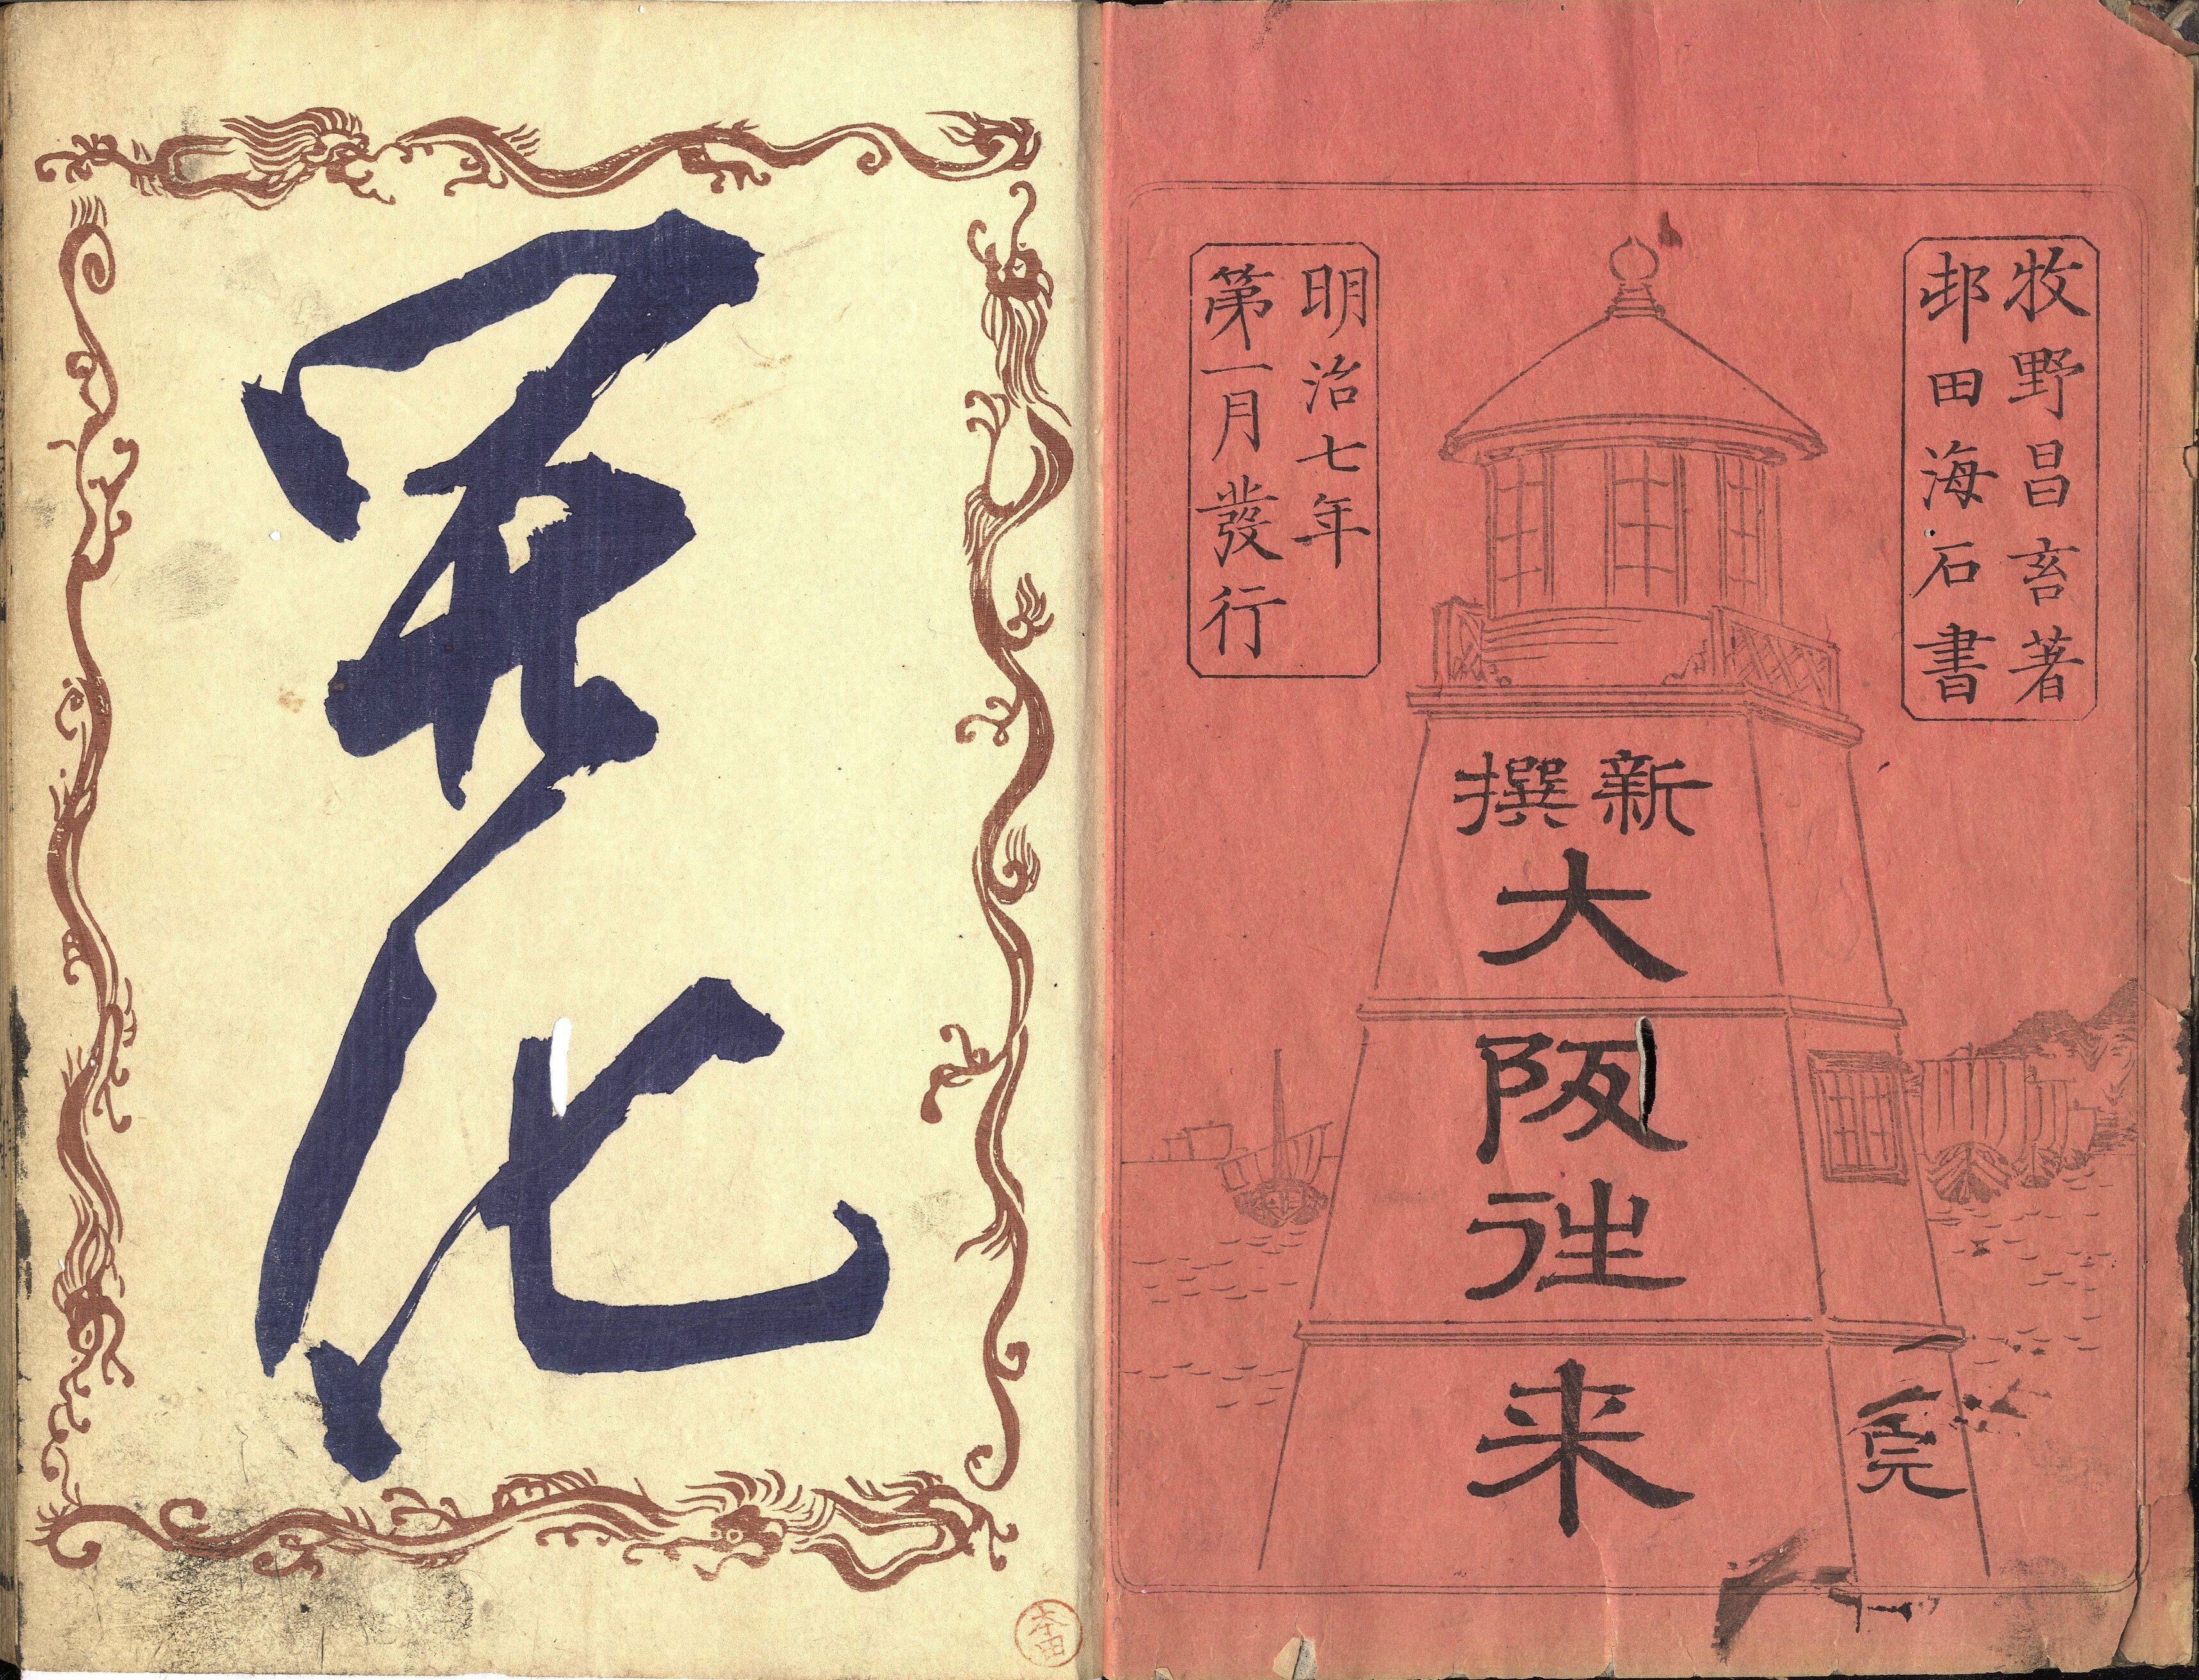 牧野昌畜著
邨田海石書
新撰
大阪往来
全
明治七年
第一月發行
開化
本田